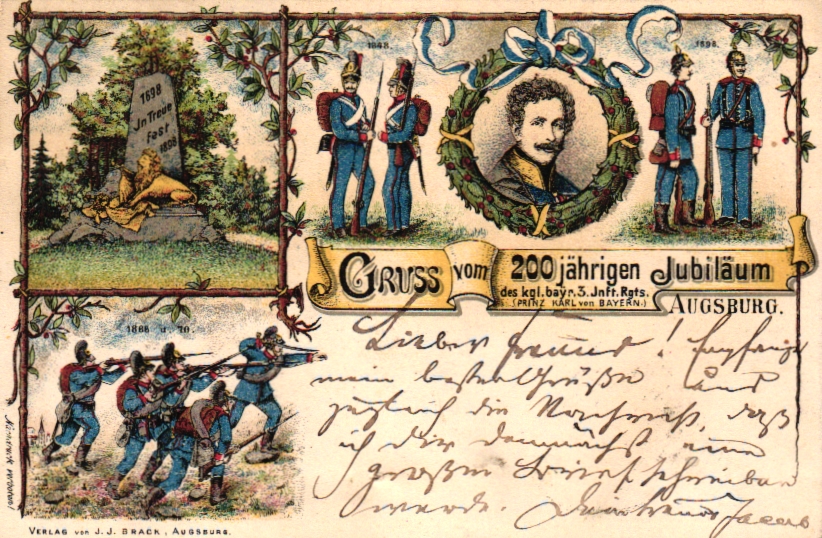 1698
In Treue
Fest
1898
1848.
1898.
GRUSS vom 200 jährigen Jubiläum
des kgl. bayr. 3. Jnft. Rgts.
(PRINZ KARL von BAYERN.)
AUGSBURG.
1866 u. 70.
Lieber Freund! Empfange
mein besten Grüße und
zugleich die Nachricht, daß
ich dir demnächst einen
großen Brief schreiben
werde. Dein Freund Jacob
Nachdruck verboten!
VERLAG von J. J. BRACK, AUGSBURG.